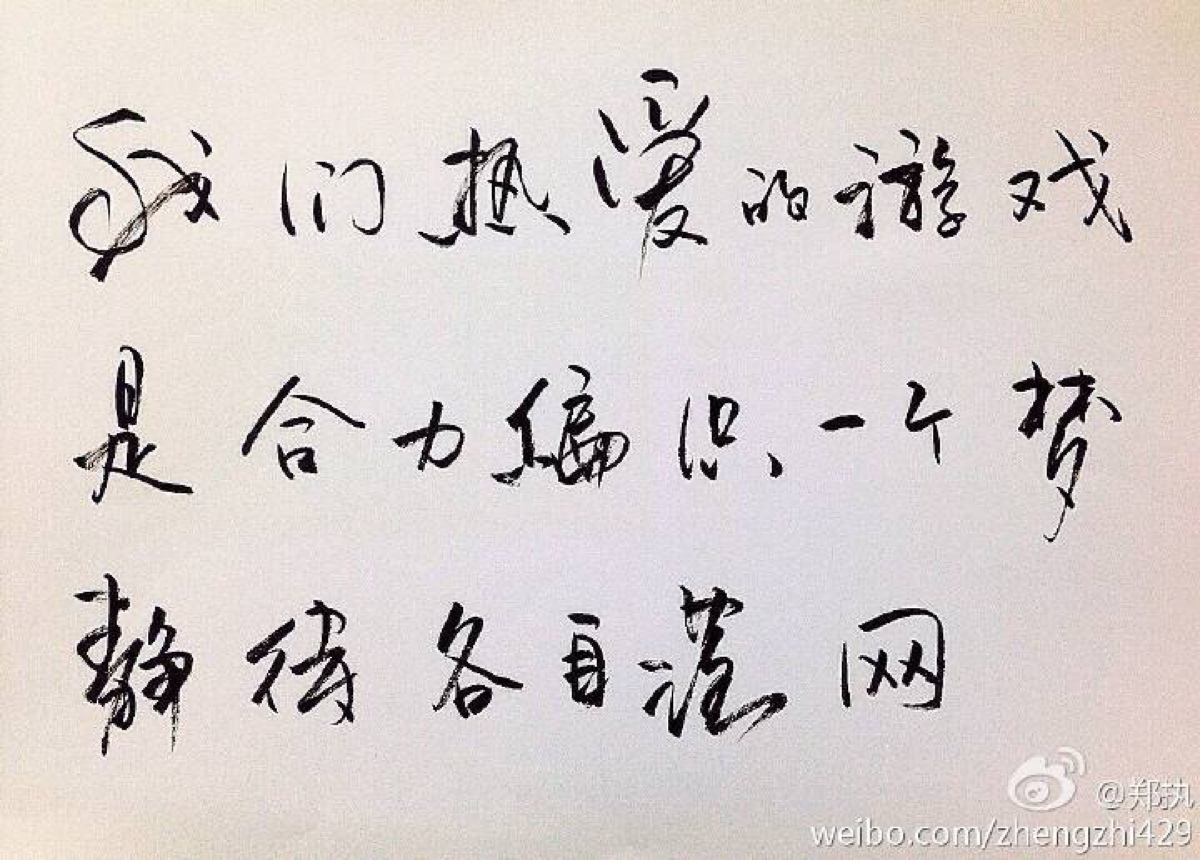 我们热爱的游戏
是合力编织一个梦
静待各自网
@郑执
weibo.com/zhengzhi429